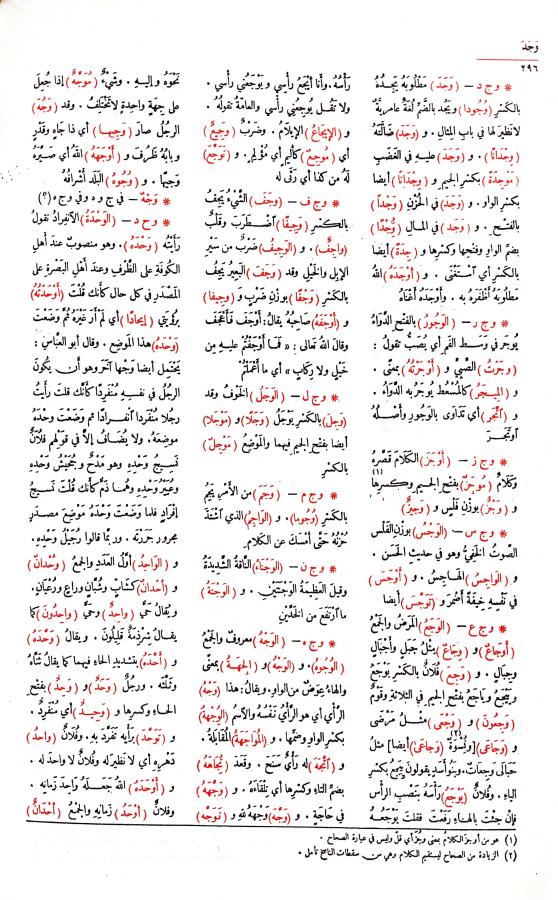 وَجَدَ
٢٩٦
* و ج د – (وَجَدَ) مَطْلُوبَهُ يَجِدُهُ
بالكَسْرِ (وُجُودا) ويَجُد بالضَّمِّ لُغَةٌ عامِرِيَّةٌ
لانَظِيرَ لها فى باب المثال . و (وَجَدَ) ضَالَّتَهُ
(وِجْدَانًا) . و (وَجَدَ) عليه فى الغَضَب
(مَوْجِدَةً) بكسْر الجيم و (وِجْدَانًا) أيضا
بكسْر الواو. و (وَجَدَ) فى الحُزْن (وَجْداً)
بالفَتْح . و (وَجَد) فى المال (وُجْدًا)
بضم الواو وفتحها وكسرها و (جِدَةً) أيضا
بالكسر أى آسْتَغْنَى . و (أَوْجَدَهُ) اللهُ
مَطْلُوبَهُ أظْفَرَهُ به . وأوْجَدَهُ أغناهُ
* و ج ر – (الوَجُورُ) بالفتح الدَّوَاءُ
يُوجَر فى وسَط الفم أى يُصَبُّ تقول :
(وَجَرْتُ) الصَّبِيَّ و (أَوْجَرْتُهُ) بمعنى .
و (المِيجَرُ) كالمُسْعُط يُوجَر به الدَّوَاءُ .
و (اتَّجَرَ) أى تَدَاوَى بالوَجُور وأصْلُهُ
اوْتَجَر
* و ج ز – (أَوْجَزَ) الكلامَ قصَّرهُ
وكَلَامٌ (مُوجَزٌ) بفتح الجيم وكسرها (١)
و (وَجْزٌ) بوزن فَلْس و (وَجِيزٌ)
* و ج س – (الوَجْسُ) بوزن الفَلْس
الصَّوتُ الخَفِيُّ وهو فى حديث الحَسَن .
و (الوَاجِسُ) الهاجِسُ . و (أَوْجَسَ)
فى نفسه خِيفَةً أضْمَرَ و (تَوَجَّسَ) أيضا
* و ج ع – (الوَجَعُ) المَرَضُ والجَمْعُ
(أَوْجَاعٌ) و (وِجَاعٌ) مثْلُ جَبل وأجْبَالٍ
وجِبالٍ . و (وَجِعَ) فُلانٌ بالكَسْر يَوْجَع
ويَيْجَع وياجَع بفتح الجيم فى الثلاثة وقَومٌ
(وَجِعُونَ) و (وَجْعَى) مثْلُ مَرْضَى
و (وَجَاعَى) [ونُسْوَةٌ (وَجَاعَى) أيضا] (٢) مثلُ
حَبَالَى وَجِعَاتٌ. وبَنُو أسَد يقولون يِيجَعُ بكسْر
الياء . وفُلانٌ (يَوْجَعُ) رَأْسَهُ بنَصْب الرأس
فإن جئتَ بالهاء رَفَعْتَ فقلتَ يَوْجَعُهُ
رَأْسُهُ. وأنا أَيْجَعُ رأسى ويَوْجَعُنى رأسى .
ولا تَقُل يُوجِعُنى رأسى والعامةُ تقولُهُ .
و (الإيجَاعُ) الإيلامُ . وضَرْبٌ (وَجِيعٌ)
أى (مُوجِعٌ) كأليم أى مُؤْلِم . و (تَوَجَّعَ)
لَهُ من كذا أى رَثَى له
* و ج ف – (وَجَفَ) الشَّىءُ يَجِفُ
بالكسْر (وَجِيفًا) آضْطَرَبَ وقَلْبٌ
(واجِفٌ) . و (الوَجِيفُ) ضَرْبٌ من سَيْر
الإبل والخَيْل وقد (وَجَفَ) البَعِيرُ يَجِفُ
بالكسْر (وَجْفًا) بوزن ضَرْبٍ و (وَجِيفا)
و (أوْجَفَهُ) صاحِبُهُ يقالُ: أوْجَفَ فأعْجَفَ
وقال اللهُ تعالى : « فما أَوْجَفْتُمْ عليه من
خَيْلٍ ولا رِكابٍ » أى ما أعْمَلْتُمْ
* و ج ل – (الوَجَلُ) الخَوفُ وقد
(وَجِلَ) بالكَسْر يَوْجَلُ (وَجَلًا) و (مَوْجَلا)
أيضا بفتح الجيم فيهما والمَوْضِعُ (مَوْجِلٌ)
بالكسر
* و ج م – (وَجَمَ) من الأمْر يَجِمُ
بالكَسْر (وُجُوما) . و (الوَاجِمُ) الذى آشْتَدَّ
حُزْنُهُ حتَّى أَمْسَكَ عن الكَلامِ
* و ج ن – (الوَجْنَاءُ) النَّاقةُ الشَّديدَةُ
وقيل العَظيمَةُ الوَجْنَتَيْن . و (الوَجْنَةُ)
ما آرْتَفَع من الخَدَّيْن
* و ج ه – (الوَجْهُ) معروفٌ والجَمْعُ
(الوُجُوهُ) . و (الوَجْهُ) و (الجِهَةُ) بمعنًى
والهاءُ عِوَضٌ من الواو. ويقالُ: هذا (وَجْهُ)
الرأْى أى هو الرَّأىُ نَفْسُهُ والآسمُ (الوِجْهَةُ)
بكسر الواو وضمّها . و (المُوَاجَهَةُ) المُقَابلةُ.
و (اتَّجَهَ) له رأىٌ سَنَحَ . وقَعَدَ (تُجَاهَهُ)
بضم التاء وكسرها أى تِلْقَاءَهُ . و (وَجَّهَهُ)
فى حاجة . و (وَجَّهَ) وجهَهُ للهِ و (تَوَجَّهَ)
نَحْوَهُ وإليه . وشَىءٌ (مُوَجَّهٌ) إذا جُعِلَ
على جهةٍ واحدةٍ لاتَخْتَلِفُ . وقد (وَجُهَ)
الرَّجُلُ صارَ (وَجِيها) أى ذا جَاهٍ وقَدْرٍ
وبابُهُ ظَرُفَ و (أَوْجَهَهُ) اللهُ أى صَيَّرَهُ
وَجِيهًا . و (وُجُوهُ) البَلَد أشْرافُهُ
* وَجْهٌ – فى ج و ه وفى و ج ه (؟)
* و ح د – (الوَحْدَةُ) الآنفرادُ تقولُ
رَأَيْتُهُ (وَحْدَهُ) . وهو منصوبٌ عند أهْل
الكُوفَة على الظَّرْف وعند أهل البَصْرة على
المَصْدَر فى كل حال كأنك قُلْتَ (أَوْحَدْتُهُ)
برُؤْيتى (إيحادًا) أى لم أَرَ غَيْرَهُ ثُمَّ وَضَعْتَ
(وَحْدَهُ) هذا المَوضِعَ . وقال أبو العبَّاس :
يَحْتَمِلُ أيضا وَجْهًا آخَرَ وهو أن يكونَ
الرجُلُ فى نَفْسه مُنْفَرِدًا كأنَّك قلتَ رأيتُ
رجُلا مُنْفَرِدا آنْفِرادًا ثم وَضَعْتَ وحْدَهُ
مَوضِعَهُ . ولا يُضَافُ إلَّا فى قولهم فُلانٌ
نَسِيجُ وَحْدِه وهو مَدْحٌ وجُحَيْشُ وَحْدِه
وعُيَيْرُ وَحْدِه وهُما ذَمٌّ كأنك قُلْتَ نَسيجُ
إفْرادٍ فلما وَضَعْتَ وَحْدَهُ مَوْضِعَ مصدَرٍ
مجرور جَررْتَهُ . وربَّما قالوا رُجَيْلُ وَحْدِه.
و (الوَاحِدُ) أوَّلُ العَدَد والجمْعُ (وُحْدانٌ)
و (أُحْدانٌ) كشابٍّ وشُبَّان وراعٍ ورُعْيان.
ويقالُ حَىٌّ (واحدٌ) وحىٌّ (واحِدُونَ) كما
يقالُ شِرْذِمَةٌ قَلِيلُونَ . ويقالُ (وَحَّدَهُ)
و (أَحَّدَهُ) بتشديد الحاء فيهما كما يقالُ ثَنَّاهُ
وثَلَّثَه . ورجُلٌ (وَحَدٌ) و (وَحِدٌ) بفتح
الحاء وكسرها و (وَحِيدٌ) أى مُنْفَرِدٌ .
و (تَوَحَّدَ) برأيه تَفَرَّدَ به . وفُلانٌ (واحدُ)
دَهْره أى لا نَظِيرَ له وفُلانٌ لا واحدَ له .
و (أَوْحَدَهُ) اللهُ جَعَلَهُ واحدَ زمانِه .
وفلانٌ (أَوْحَدُ) زَمَانِه والجَمْعُ (أُحْدَانٌ)
(١) هو من أوجز الكلام بمعنى وجُزَ أى قلّ وليس فى عبارة الصحاح .
(٢) الزيادة من الصحاح ليستقيم الكلام وهى من سقطات الناسخ تأمل .